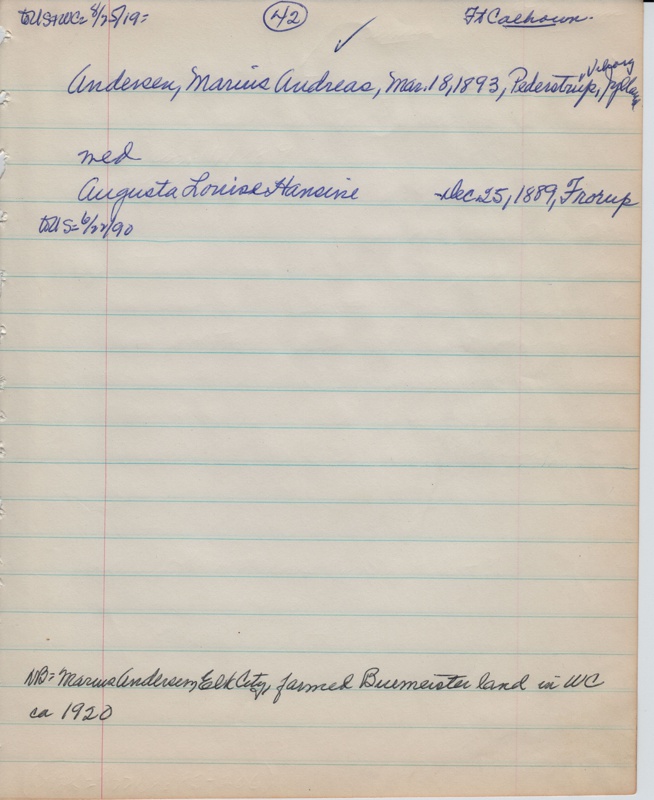 to US+WC= 8/25/19=
42
Ft Calhoun.
Viborg
Andersen, Marius Andreas, Mar. 18, 1893, Pederstrup,
med
Augusta Louise Hansine Dec 25, 1889, Frorup
to US= 6/22/90
NB= Marius Andersen, Elk City, farmed Buemeister land in WC
ca 1920